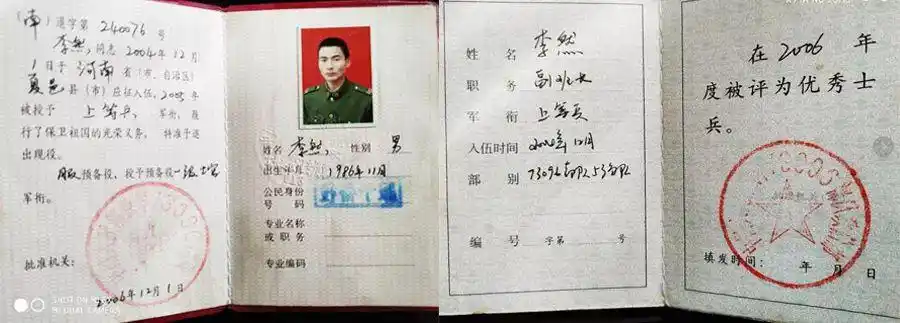 （南）退字第 240076 号
李然，同志 2004年 12月
1日于 河南 省（市、自治区）
夏邑 县（市）应征入伍，2005年
被授予 上等兵， 军衔，履
行了保卫祖国的光荣义务， 特准予退
出现役。
服预备役，授予预备役一级士官
军衔。
批准机关：
2006年12月1日
姓名 李然， 性别 男
出生年月 1986年11月
公民身份
号 码
专业名称
或 职 务
专业编码
SHOT ON MI
AI DUAL CAMERA
姓 名 李然
职 务 副班长
军 衔 上等兵
入伍时间 2004年12月
部 别 73096部队53分队
编 号 字第 号
在 2006 年
度被评为优秀士
兵。
填发时间： 年 月 日